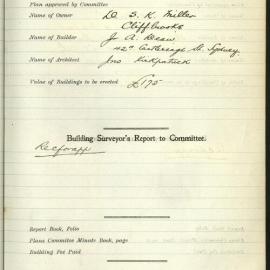 Plan approved by Committee
Name of Owner D. S. K. Miller
Cliffbrooke
Name of Builder J. A. Dean
42 Castlereagh St. Sydney
Name of Architect Jno Kirkpatrick
Value of Buildings to be erected £175
Building Surveyor's Report to Committee.
Rec for app
Report Book, Folio
Plans Committee Minute Book, page
Building Fee Paid